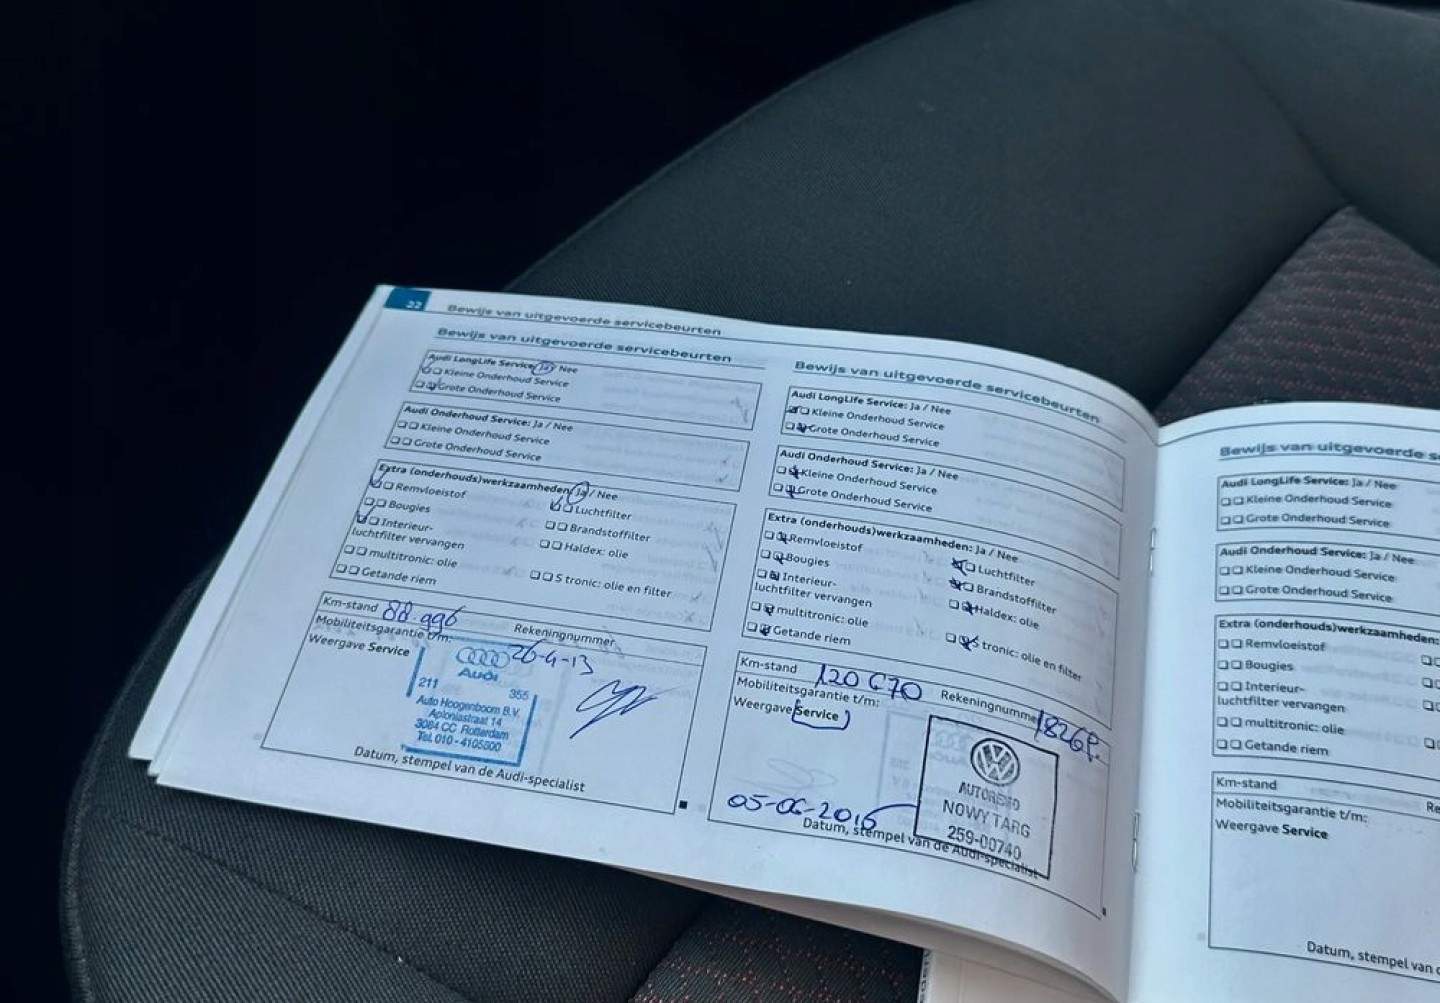 22 Bewijs van uitgevoerde servicebeurten
Bewijs van uitgevoerde servicebeurten
Audi LongLife Service: Ja / Nee
Kleine Onderhoud Service
Grote Onderhoud Service
Audi Onderhoud Service: Ja / Nee
Kleine Onderhoud Service
Grote Onderhoud Service
Extra (onderhouds)werkzaamheden: Ja / Nee
Remvloeistof
Luchtfilter
Bougies
Brandstoffilter
Interieur-
luchtfilter vervangen
Haldex: olie
multitronic: olie
S tronic: olie en filter
Getande riem
Km-stand 88.996
Rekeningnummer
Mobiliteitsgarantie t/m:
26-4-13
Weergave Service
Audi
211 355
Auto Hoogenboom B.V.
Aploniastraat 14
3084 CC Rotterdam
Tel. 010 - 4105800
Datum, stempel van de Audi-specialist
Bewijs van uitgevoerde servicebeurten
Audi LongLife Service: Ja / Nee
Kleine Onderhoud Service
Grote Onderhoud Service
Audi Onderhoud Service: Ja / Nee
Kleine Onderhoud Service
Grote Onderhoud Service
Extra (onderhouds)werkzaamheden: Ja / Nee
Remvloeistof
Luchtfilter
Bougies
Brandstoffilter
Interieur-
luchtfilter vervangen
Haldex: olie
multitronic: olie
S tronic: olie en filter
Getande riem
Km-stand 120 670
Rekeningnummer
Mobiliteitsgarantie t/m:
Weergave Service
AUTOREMO
NOWY TARG
259-00740
05-06-2016
Datum, stempel van de Audi-specialist
Bewijs van uitgevoerde se
Audi LongLife Service: Ja / Nee
Kleine Onderhoud Service
Grote Onderhoud Service
Audi Onderhoud Service: Ja / Nee
Kleine Onderhoud Service
Grote Onderhoud Service
Extra (onderhouds)werkzaamheden:
Remvloeistof
Bougies
Interieur-
luchtfilter vervangen
multitronic: olie
Getande riem
Km-stand
Re
Mobiliteitsgarantie t/m:
Weergave Service
Datum, stempel van d